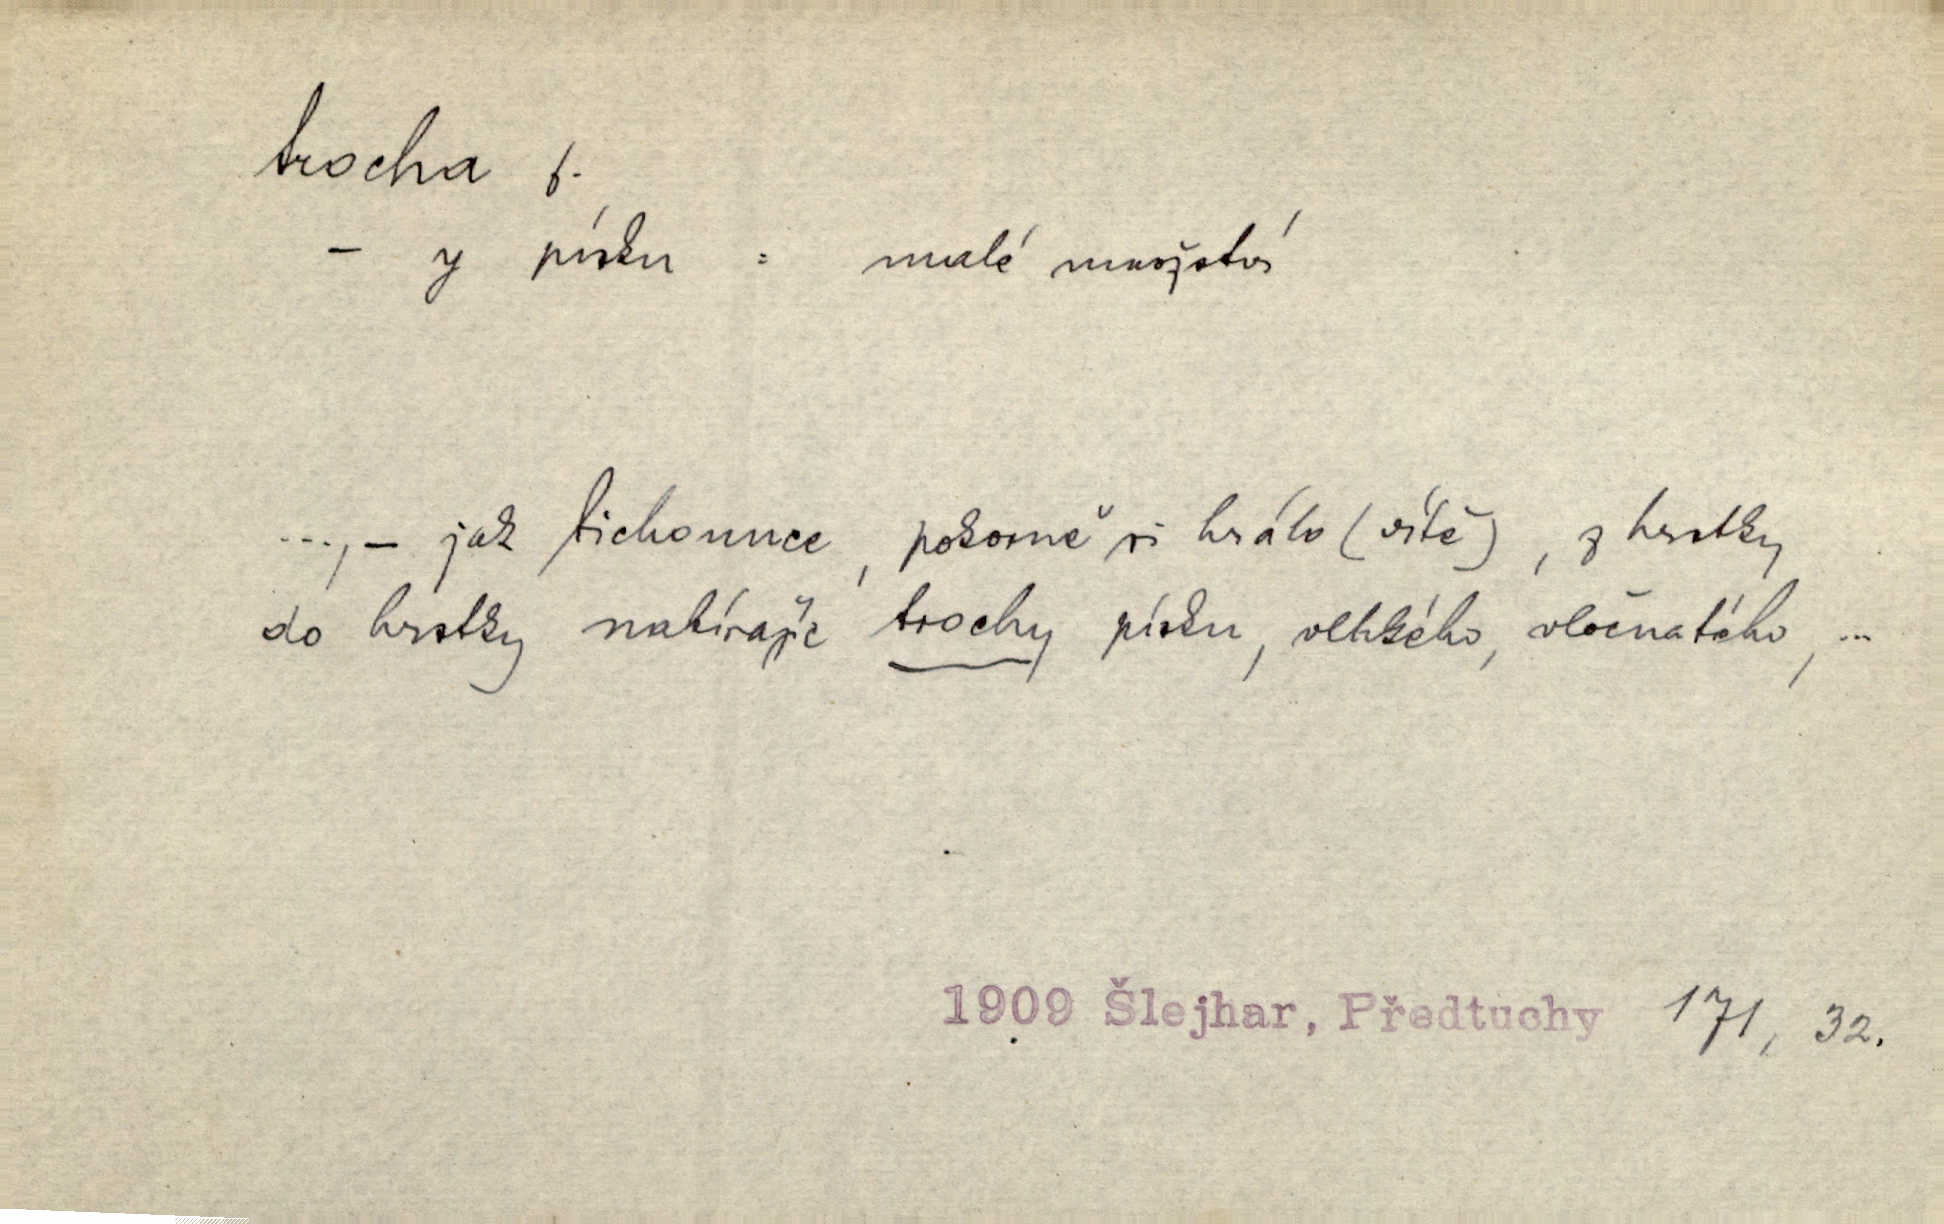 trocha f.
– y písku : malé množství
..., – jak tichounce, pokorně si hrálo (dítě), z hrstky
do hrstky nabírajíc trochy písku, vlhkého, vločnatého, ...
1909 Šlejhar, Předtuchy 171, 32.